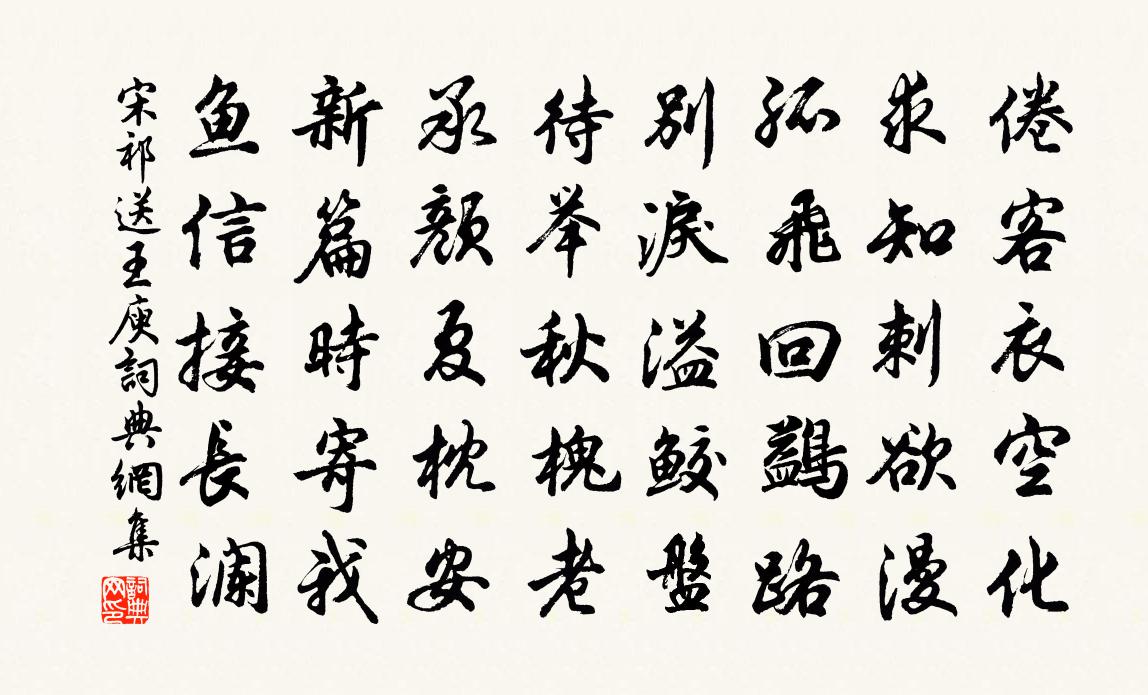 倦客衣空化
求知刺欲漫
孤飛回鷁路
別淚溢鮫盤
待举秋槐老
承顏夏枕安
新篇時寄我
鱼信接長澜
宋祁送王庾詞典網集
詞典网印